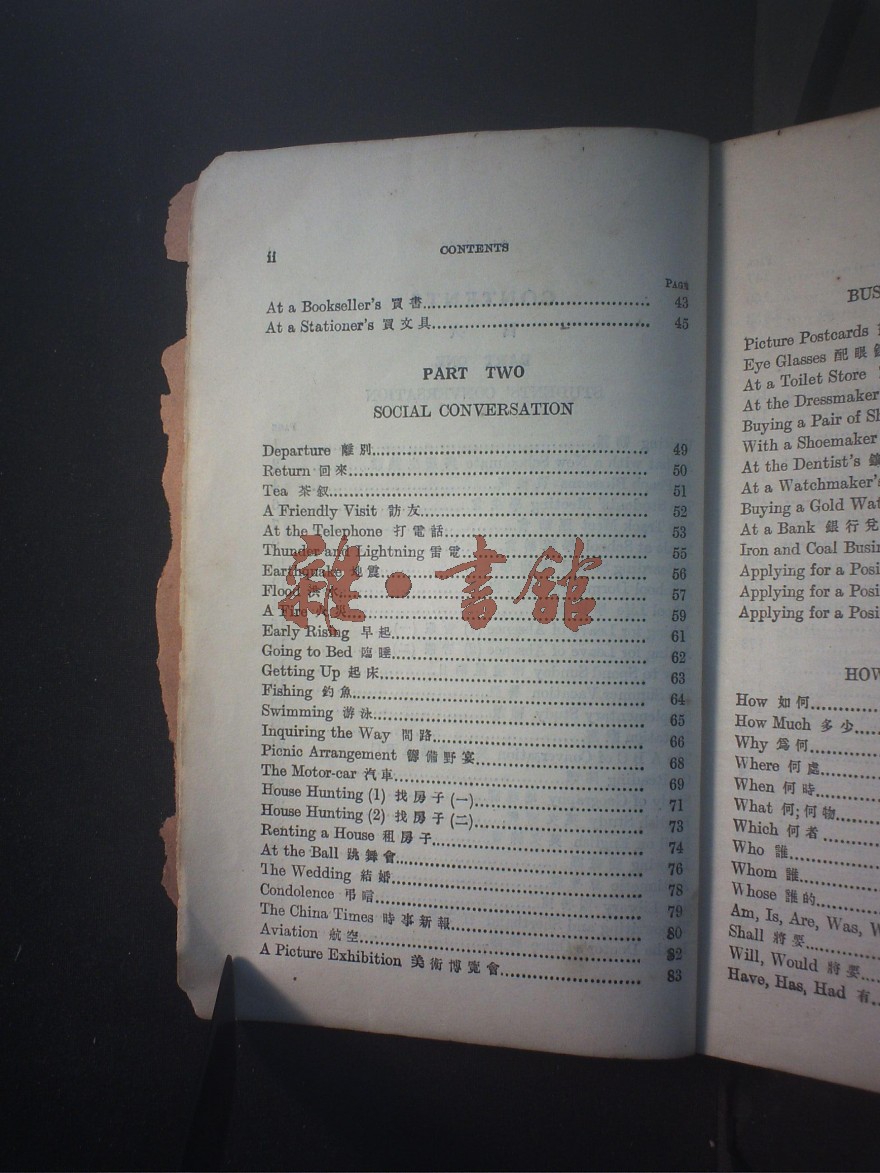 ii
CONTENTS
PAGE
At a Bookseller's 買書 43
At a Stationer's 買文具 45
PART TWO
SOCIAL CONVERSATION
Departure 離別 49
Return 回來 50
Tea 茶叙 51
A Friendly Visit 訪友 52
At the Telephone 打電話 53
Thunder and Lightning 雷電 55
Earthquake 地震 56
Flood 洪水 57
A Fire 火 59
Early Rising 早起 61
Going to Bed 臨睡 62
Getting Up 起床 63
Fishing 釣魚 64
Swimming 游泳 65
Inquiring the Way 問路 66
Picnic Arrangement 籌備野宴 68
The Motor-car 汽車 69
House Hunting (1) 找房子(一) 71
House Hunting (2) 找房子(二) 73
Renting a House 租房子 74
At the Ball 跳舞會 76
The Wedding 結婚 78
Condolence 弔唁 79
The China Times 時事新報 80
Aviation 航空 82
A Picture Exhibition 美術博覽會 83
雜·書館
BUS
Picture Postcards
Eye Glasses 配眼
At a Toilet Store
At the Dressmaker
Buying a Pair of Sh
With a Shoemaker
At the Dentist's
At a Watchmaker's
Buying a Gold Wat
At a Bank 銀行兌
Iron and Coal Busin
Applying for a Posi
Applying for a Posi
Applying for a Posi
HOW
How 如何
How Much 多少
Why 爲何
Where 何處
When 何時
What 何;何物
Which 何者
Who 誰
Whom 誰
Whose 誰的
Am, Is, Are, Was, W
Shall 將要
Will, Would 將要
Have, Has, Had 有